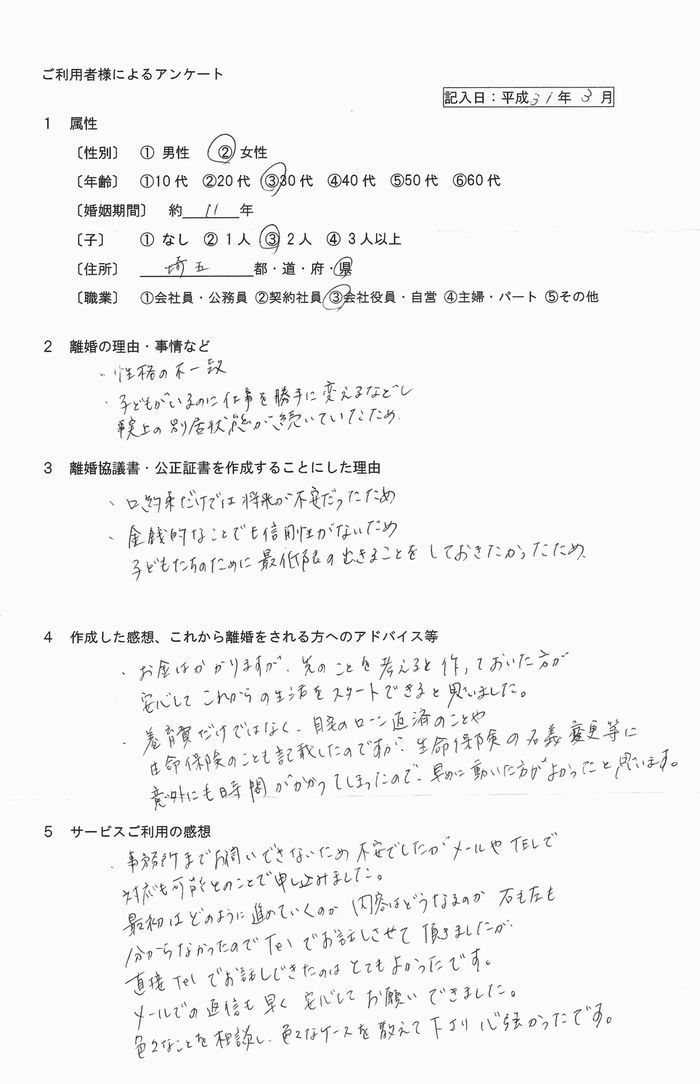 ご利用者様によるアンケート
記入日：平成31年 3月
1 属性
〔性別〕 ① 男性 ② 女性
〔年齢〕 ①10代 ②20代 ③30代 ④40代 ⑤50代 ⑥60代
〔婚姻期間〕 約 11 年
〔子〕 ① なし ② 1人 ③ 2人 ④ 3人以上
〔住所〕 埼玉 都・道・府・県
〔職業〕 ①会社員・公務員 ②契約社員 ③会社役員・自営 ④主婦・パート ⑤その他
2 離婚の理由・事情など
・性格の不一致
・子どもがいるのに仕事を勝手に変えるなどし
事実上の別居状態が続いていたため
3 離婚協議書・公正証書を作成することにした理由
・口約束だけでは将来が不安だったため
・金銭的なことでも信用性がないため
子どもたちのために最低限の出きることをしておきたかったため
4 作成した感想、これから離婚をされる方へのアドバイス等
・お金はかかりますが、先のことを考えると作っておいた方が
安心してこれからの生活をスタートできると思いました。
・養育費だけではなく、自宅のローン返済のことや
生命保険のことも記載したのですが、生命保険の名義変更等に
意外にも時間がかかってしまったので、早めに動いた方がよかったと思います。
5 サービスご利用の感想
・事務所までお伺いできないため不安でしたがメールやTELで
対応も可能とのことで申し込みました。
最初はどのように進めていくのか 内容はどうなるのか 右も左も
分からなかったのでTelでお話しさせて頂きましたが、
直接Telでお話しできたのはとてもよかったです。
メールでの返信も早く安心してお願いできました。
色々なことを相談し、色々なケースを教えて下さり心強かったです。